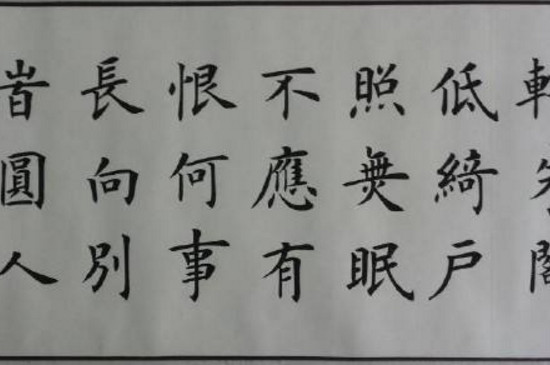 轉朱閣
低綺户
照無眠
不應有
恨何事
長向別
旹圓人